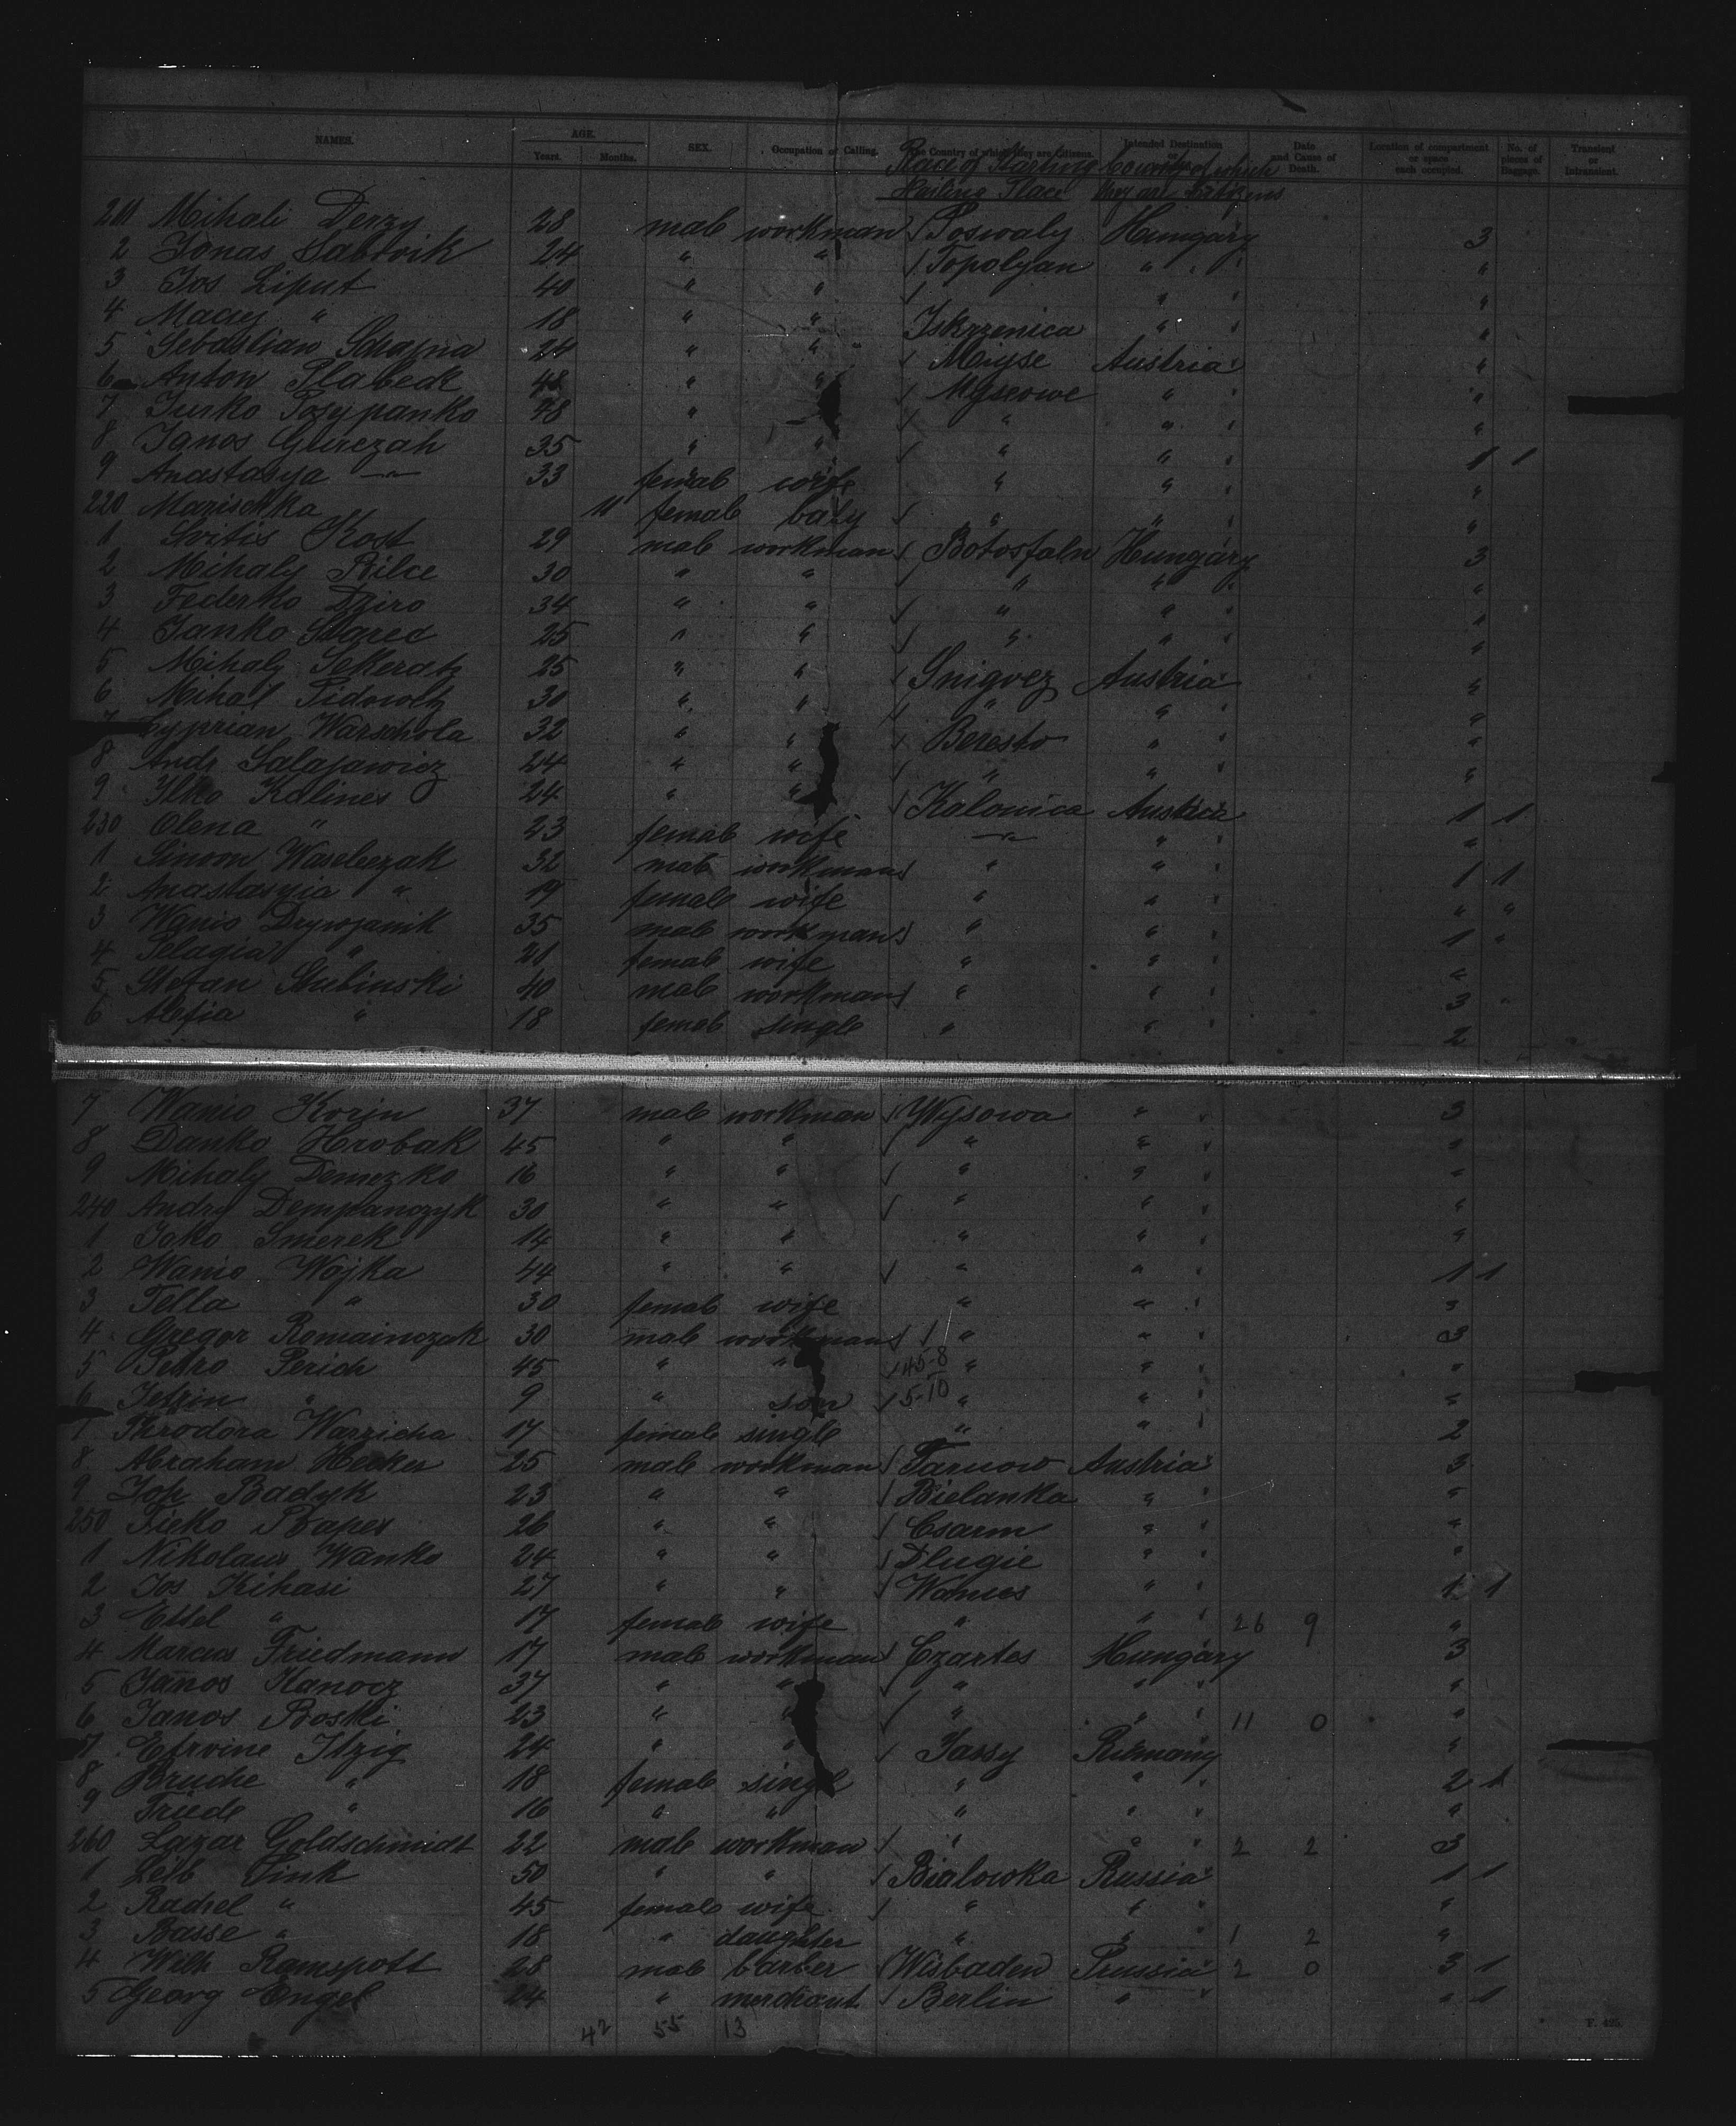 NAMES. AGE. Years. Months. SEX. Occupation or Calling. The Country of which they are Citizens. Intended Destination Date and Cause of Death. Location of compartment or space each occupied. No. of pieces of Baggage. Transient or Intransient.
Place of Starting Country of which
they are citizens
211 Mihali Derzy 28 male workman Poswaly Hungary 3
2 Jonas 24 " " Topolyan " " "
3 Jos Liput 40 " " " " "
4 Maciej " 18 " " Iskrzenica " "
5 Sebastian 24 " " Austria "
6 Anton Slabeck 48 " " Myscowe " " "
7 Jurko Josypanko 48 " " " " " "
8 Janos Gurczah 35 " " " " " 1 1
9 Anastasya 33 female wife " " " "
220 Marischka 11 female baby " " " "
1 Kost 29 male workman Botosfaln Hungary 3
2 Mihaly Bilce 30 " " " " " "
3 Federko Dziro 34 " " " " " "
4 Janko 25 " " " " " "
5 Mihaly Sekeratz 25 " " Snigvez Austria "
6 Mihal Sidowltz 30 " " " " " "
7 Cyprian Warschola 32 " " Beresto " " "
8 Andr Salajawicz 24 " " " " " "
9 Ilko Kalines 24 " " Kalonica Austria 1 1
230 Olena " 23 female wife " " "
1 Simon Waselczak 32 male workman " " " 1 1
2 Anastasia " 19 female wife " " " " "
3 Wanio Drywjanik 35 male workman " " " 1 "
4 Pelagia " 21 female wife " " " "
5 Stefan Stubinski 40 male workman " " " 3 "
6 Alexia " 18 female single " " " 2
7 Wanio Korjn 37 male workman Wysowa " " 3
8 Danko Hrobak 45 " " " " " "
9 Mihaly Demezko 16 " " " " " "
240 Andry Dempanczyk 30 " " " " " "
1 Joko Smerek 14 " " " " " "
2 Wanio Wojka 44 " " " " " 1 1
3 Tella " 30 female wife " " " "
4 Gregor Romainczuk 30 male workman " " " 3
5 Petro Perich 45 " " 45-8 " " " "
6 " 9 " son 5-10 " " " "
7 Theodora Warzicha 17 female single " " " 2
8 Abraham Hecker 25 male workman Tarnow Austria 3
9 Joh Badyk 23 " " Bielanka " " "
250 Fieko 26 " " Csarm " " "
1 Nikolaus Wanko 24 " " Dlugie " " "
2 Jos Kihasi 27 " " " " 1 1
3 Ettel " 17 female wife " " " 26 9 "
4 Marcus Friedmann 17 male workman Czartes Hungary 3
5 Janos Kanocz 37 " " " " " "
6 Janos Boski 23 " " " " " 11 0 "
7 Efroine Itzig 24 " " Jassy Rumany "
8 Bruche " 18 female single " " " 2 1
9 Friede " 16 " " " " " "
260 Lazar Goldschmidt 22 male workman " " " 2 2 3
1 Leib Fink 50 " " Bialowka Russia 1 1
2 Rachel " 45 female wife " " " "
3 Basse " 18 " daughter " " " 1 2 "
4 Wilh Ramspott 28 male barber Wisbaden Prussia 2 0 3 1
5 Georg Engel 24 " merchant Berlin " " " 1
42 55 13